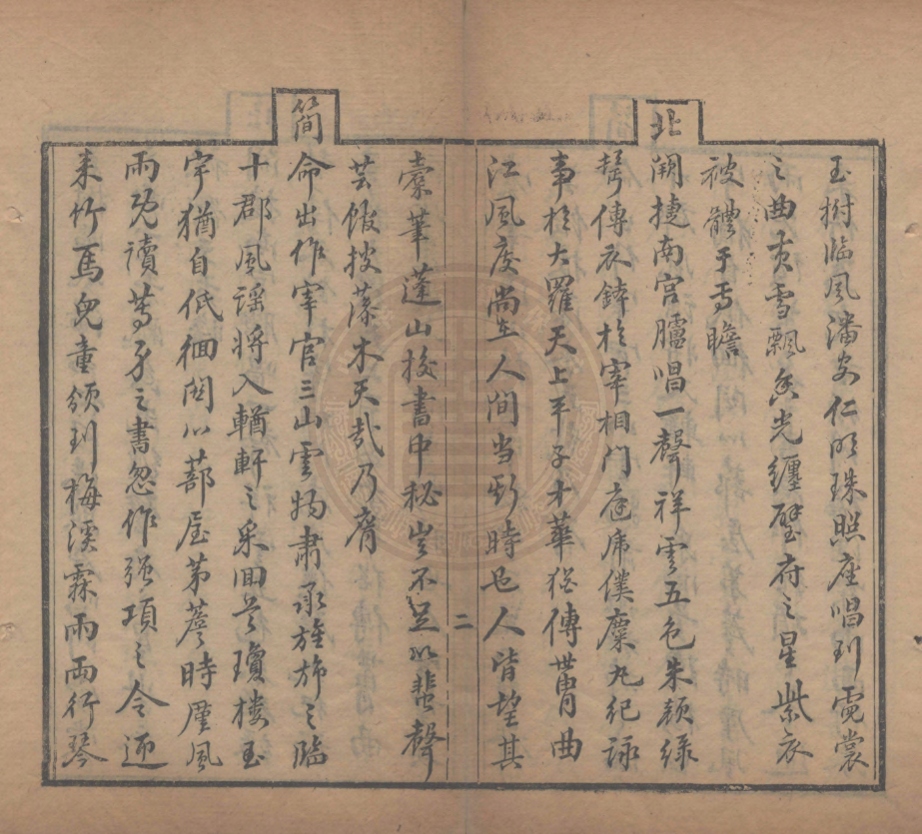 玉樹臨風潘安仁明珠照座唱到霓裳
之曲黄雪飄香光纏璧府之星紫衣
被體于焉瞻
北
闕捷南宮臚唱一聲祥雲五色朱顏綠
鬢傳衣鉢於宰相門庭席僕麋丸紀詠
事於大羅天上平子才華猶傳世胄曲
江風度尚在人間当斯時也人皆望其
二
橐筆蓬山校書中秘豈不足以蜚聲
芸館掞藻木天哉乃膺
簡
命出作宰官三山雲物肅承旌旆之臨
十郡風謠將入輶軒之采回首瓊樓玉
宇猶自低徊関心蔀屋茅簷時廑風
雨既讀等身之書忽作强項之令迎
来竹馬兒童頌到梅溪霖雨兩行琴